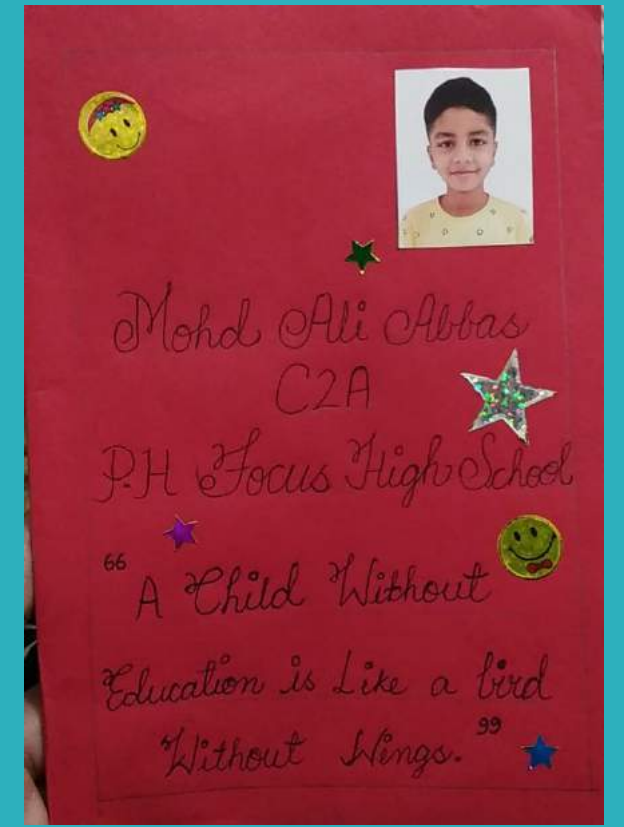 Mohd Ali Abbas
C2A
P.H Focus High School
“A Child Without
Education is Like a bird
Without Wings.”